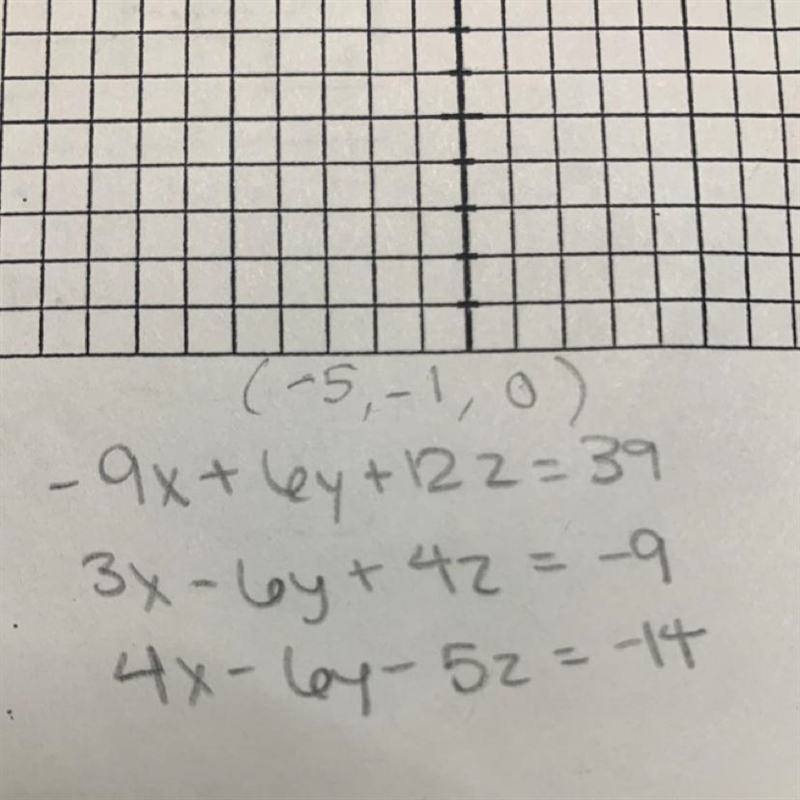 (-5, -1, 0)
-9x + 6y + 12z = 39
3x - 6y + 4z = -9
4x - 6y - 5z = -14